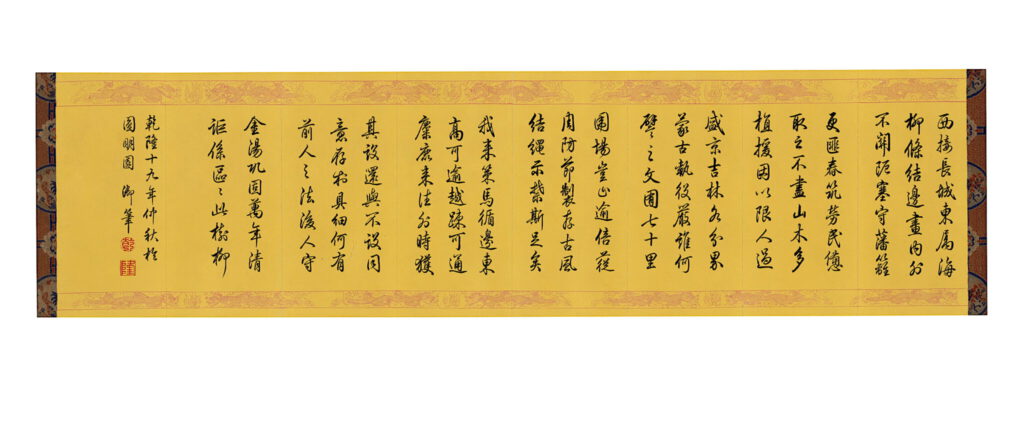 西接長城東屬海
柳條結邊畫內外
不關阨塞守藩籬
更匪春筑勞民憊
取之不盡山木多
植援因以限人過
盛京吉林各分界
蒙古執役嚴誰何
譬之文囿七十里
圍場豈止逾倍蓰
周防節製存古風
結繩示禁斯足矣
我來策馬循邊東
高可逾越踈可通
麋鹿來往外時獲
其設還與不設同
意存於具細何有
前人之法後人守
金湯鞏固萬年清
詎係區々此樹柳
乾隆十九年仲秋於
圓明園 御筆